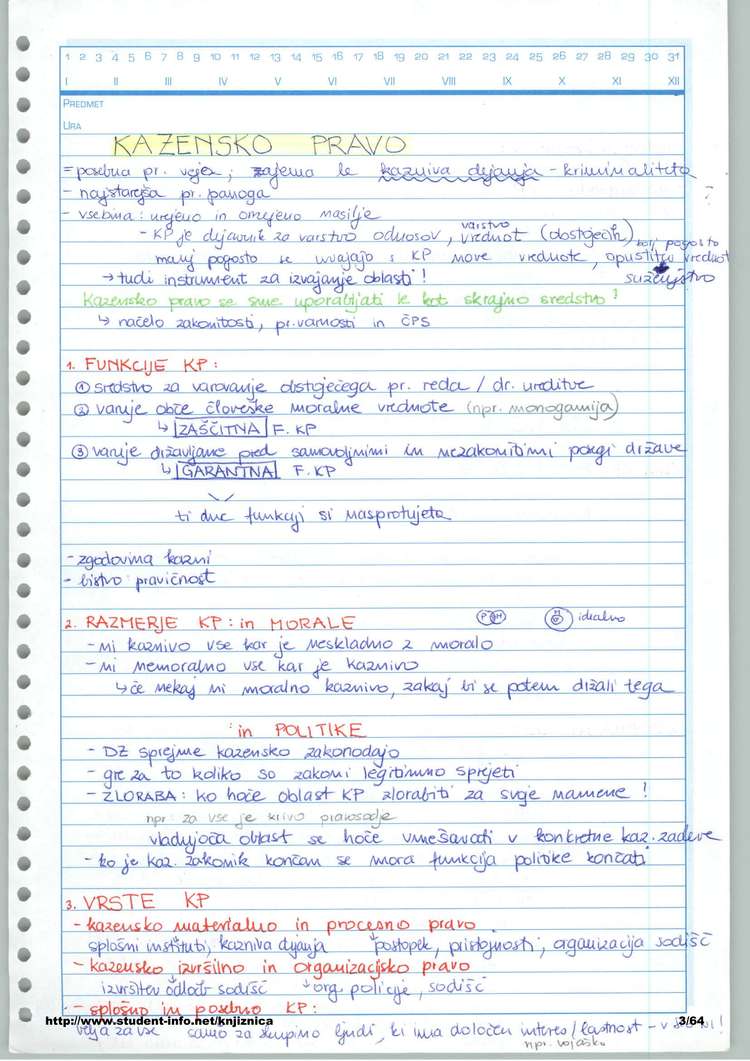 1 2 3 4 5 6 7 8 9 10 11 12 13 14 15 16 17 18 19 20 21 22 23 24 25 26 27 28 29 30 31
I II III IV V VI VII VIII IX X XI XII
PREDMET
URA
KAZENSKO PRAVO
= posebna pr. veja ; zajema le kazniva dejanja - kriminaliteta
- najstarejša pr. panoga ?
- vsebina : urejeno in omejeno nasilje
- KP je dejavnik za varstvo odnosov, varstvo vrednot (obstoječih)
manj pogosto se uvajajo s KP nove vrednote, bolj pogosto opustitev vrednost
→ tudi instrument za izvajanje oblasti ! suženjstvo
Kazensko pravo se sme uporabljati le kot skrajno sredstvo !
↳ načelo zakonitosti, pr. varnosti in ČPS
1. FUNKCIJE KP :
① sredstvo za varovanje obstoječega pr. reda / dr. ureditve
② varuje obče človeške moralne vrednote (npr. monogamija)
↳ ZAŠČITNA F. KP
③ varuje državljane pred samovoljnimi in nezakonitimi posegi države
↳ GARANTNA F. KP
ti dve funkciji si nasprotujeta
- zgodovina kazni
- bistvo pravičnost
2. RAZMERJE KP : in MORALE P M idealno
- ni kaznivo vse kar je neskladno z moralo
- ni nemoralno vse kar je kaznivo
↳ če nekaj ni moralno kaznivo, zakaj bi se potem držali tega
: in POLITIKE
- DZ sprejme kazensko zakonodajo
- gre za to koliko so zakoni legitimno sprejeti
- ZLORABA : ko hoče oblast KP zlorabiti za svoje namene !
npr. za vse je krivo pravosodje
vladujoča oblast se hoče vmešavati v konkretne kaz. zadeve
- ko je kaz. zakonik končan se mora funkcija politike končati
3. VRSTE KP
- kazensko materialno in procesno pravo
splošni instituti, kazniva dejanja postopek, pristojnosti, organizacija sodišč
- kazensko izvršilno in organizacijsko pravo
izvršitev odločb sodišč org. policije, sodišč
- splošno in posebno KP :
http://www.student-info.net/knjiznica 3/64
velja za vse samo za skupino ljudi, ki ima določen interes / lastnost
npr. vojaško